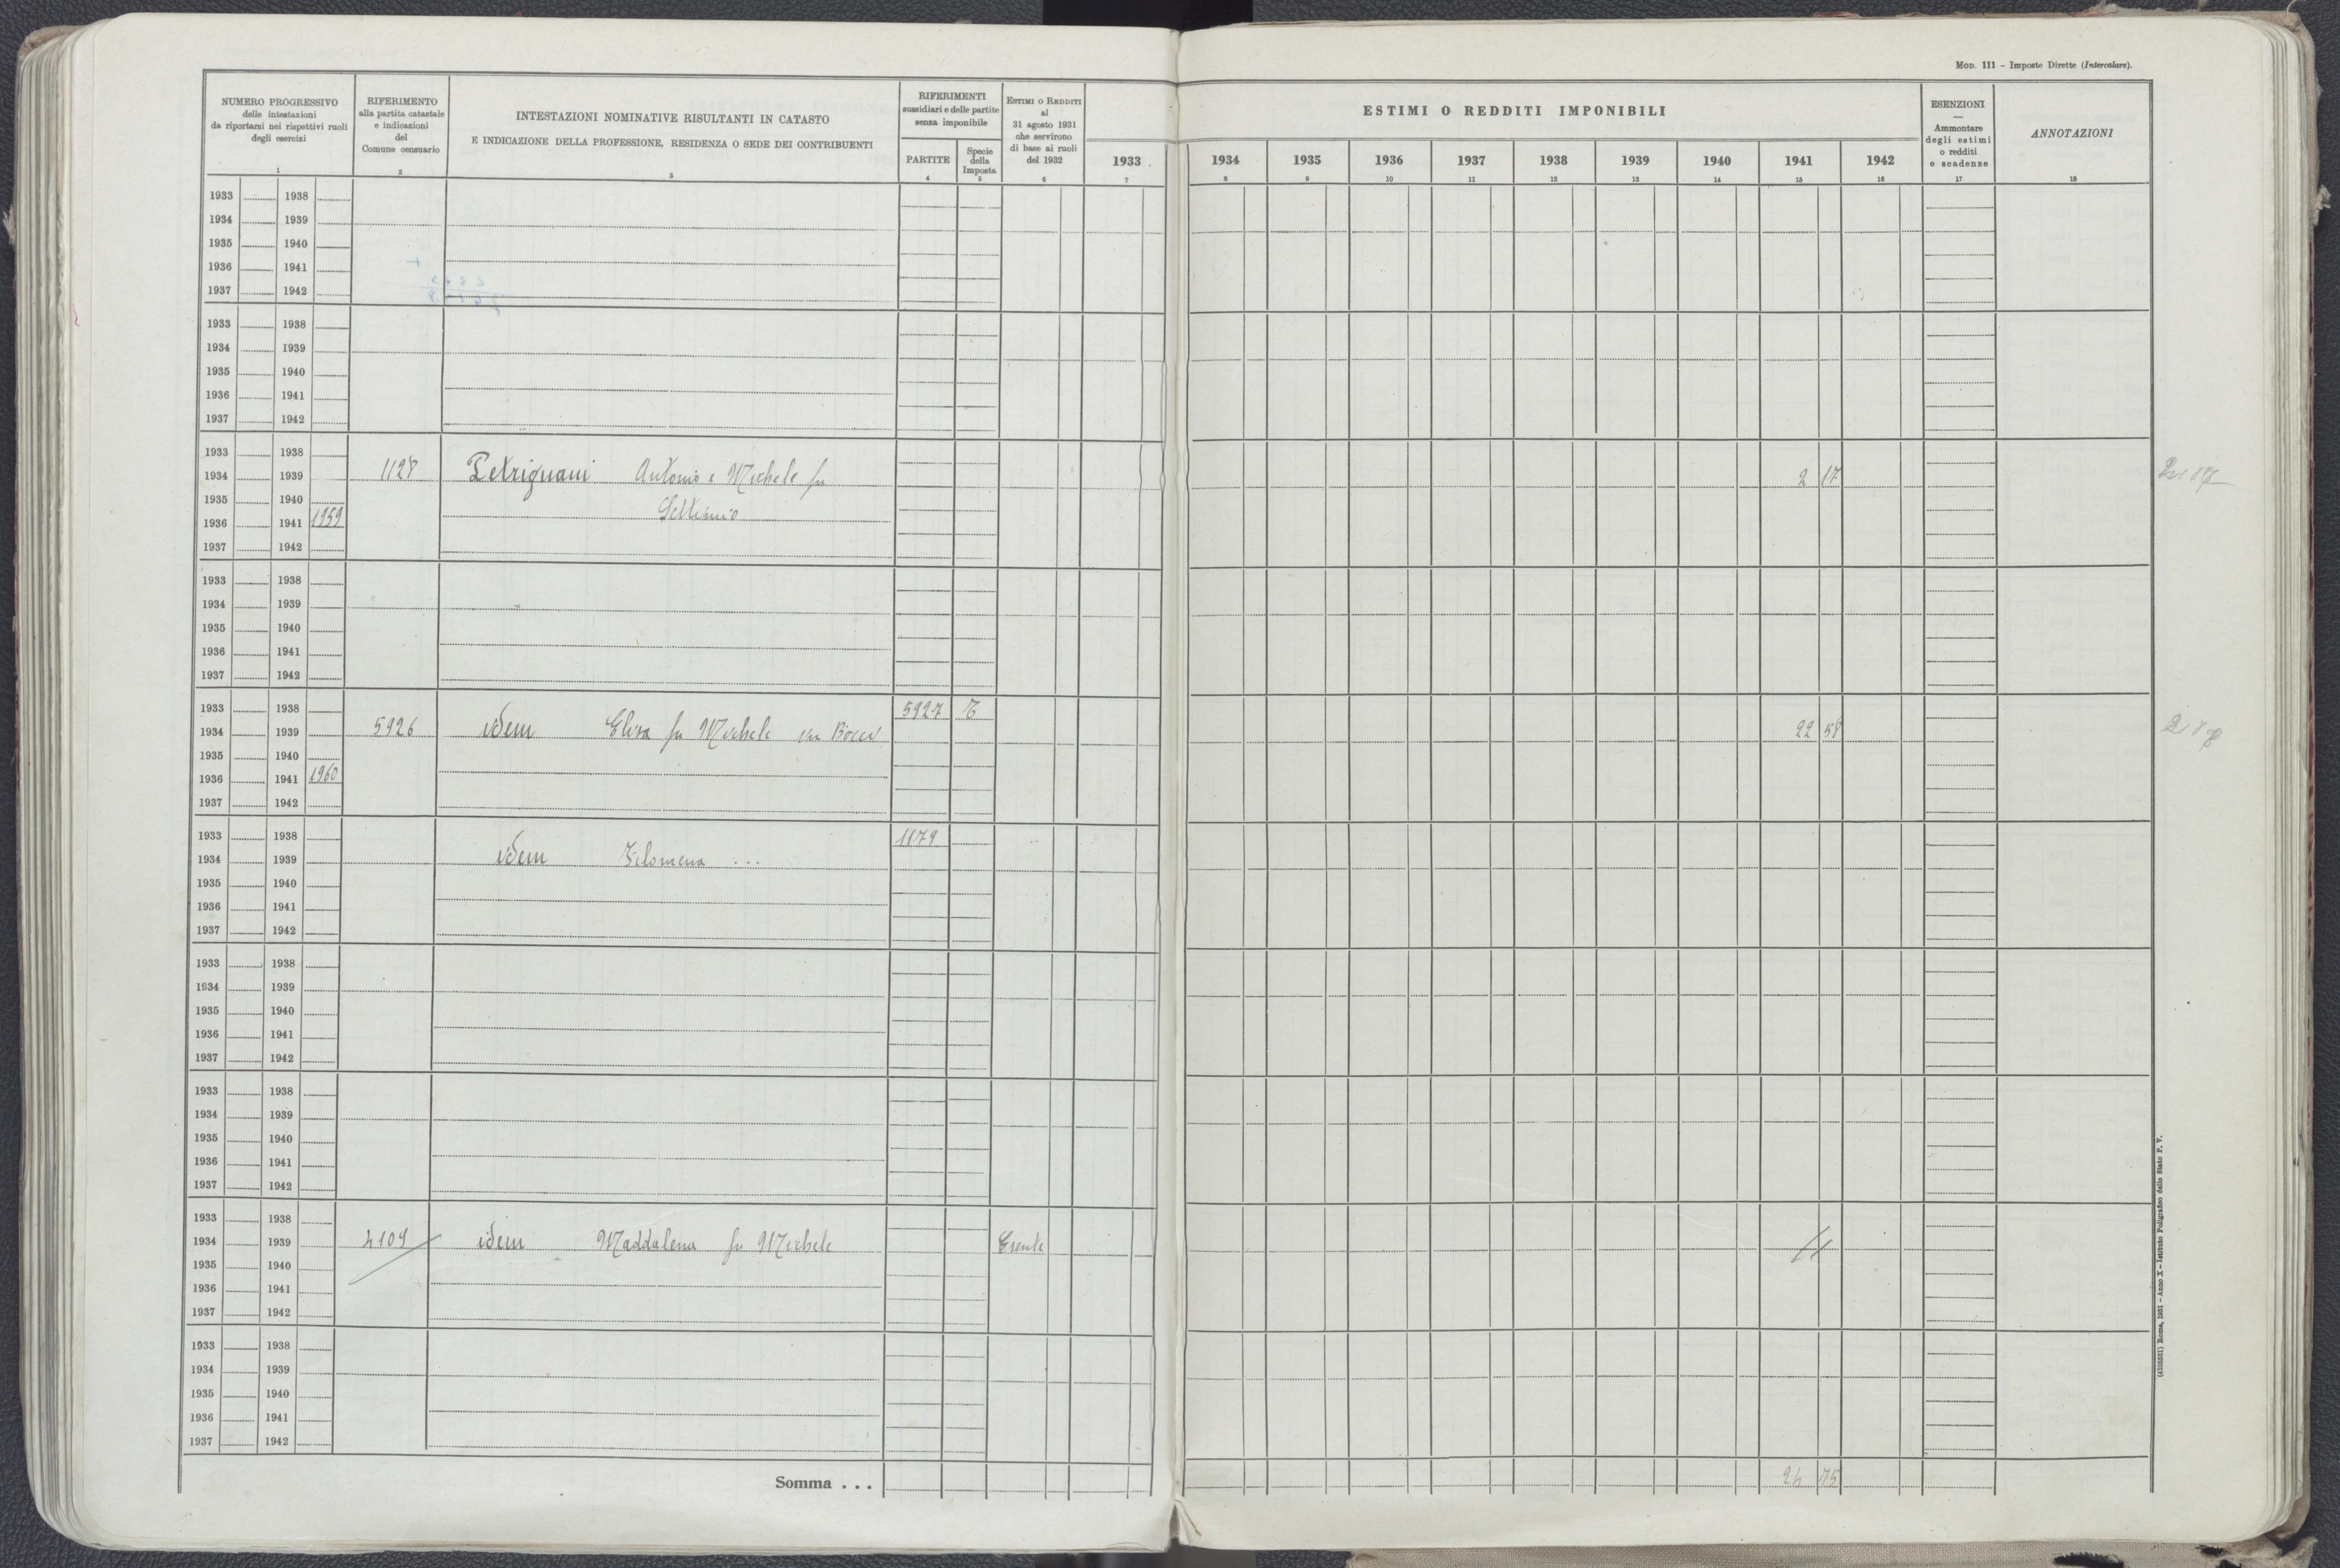 Mod. 111 – Imposte Dirette (Intercalare).
NUMERO PROGRESSIVO
delle intestazioni
da riportarsi nei rispettivi ruoli
degli esercizi
1
RIFERIMENTO
alla partita catastale
e indicazioni
del
Comune censuario
2
INTESTAZIONI NOMINATIVE RISULTANTI IN CATASTO
E INDICAZIONE DELLA PROFESSIONE, RESIDENZA O SEDE DEI CONTRIBUENTI
3
RIFERIMENTI
sussidiari e delle partite
senza imponibile
PARTITE
4
Specie
della
Imposta
5
Estimi o Redditi
al
31 agosto 1931
che servirono
di base ai ruoli
del 1932
6
ESTIMI O REDDITI IMPONIBILI
1933 1934 1935 1936 1937 1938 1939 1940 1941 1942
7 8 9 10 11 12 13 14 15 16
ESENZIONI
—
Ammontare
degli estimi
o redditi
e scadenze
17
ANNOTAZIONI
18
1933 1938
1934 1939
1935 1940
1936 1941
1937 1942
1933 1938
1934 1939
1935 1940
1936 1941
1937 1942
1933 1938
1934 1939 1128 Petrignani Antonio e Michele fu 2 17
1935 1940 Settimio
1936 1941 1959
1937 1942
1933 1938
1934 1939
1935 1940
1936 1941
1937 1942
1933 1938 5927 T
1934 1939 5926 idem Elisa fu Michele 22 58
1935 1940
1936 1941 1960
1937 1942
1933 1938 1179
1934 1939 idem Filomena ...
1935 1940
1936 1941
1937 1942
1933 1938
1934 1939
1935 1940
1936 1941
1937 1942
1933 1938
1934 1939
1935 1940
1936 1941
1937 1942
1933 1938
1934 1939 4109 idem Maddalena fu Michele Esente
1935 1940
1936 1941
1937 1942
1933 1938
1934 1939
1935 1940
1936 1941
1937 1942
Somma . . . 24 75
(4103531) Roma, 1931 – Anno X – Istituto Poligrafico dello Stato P. V.